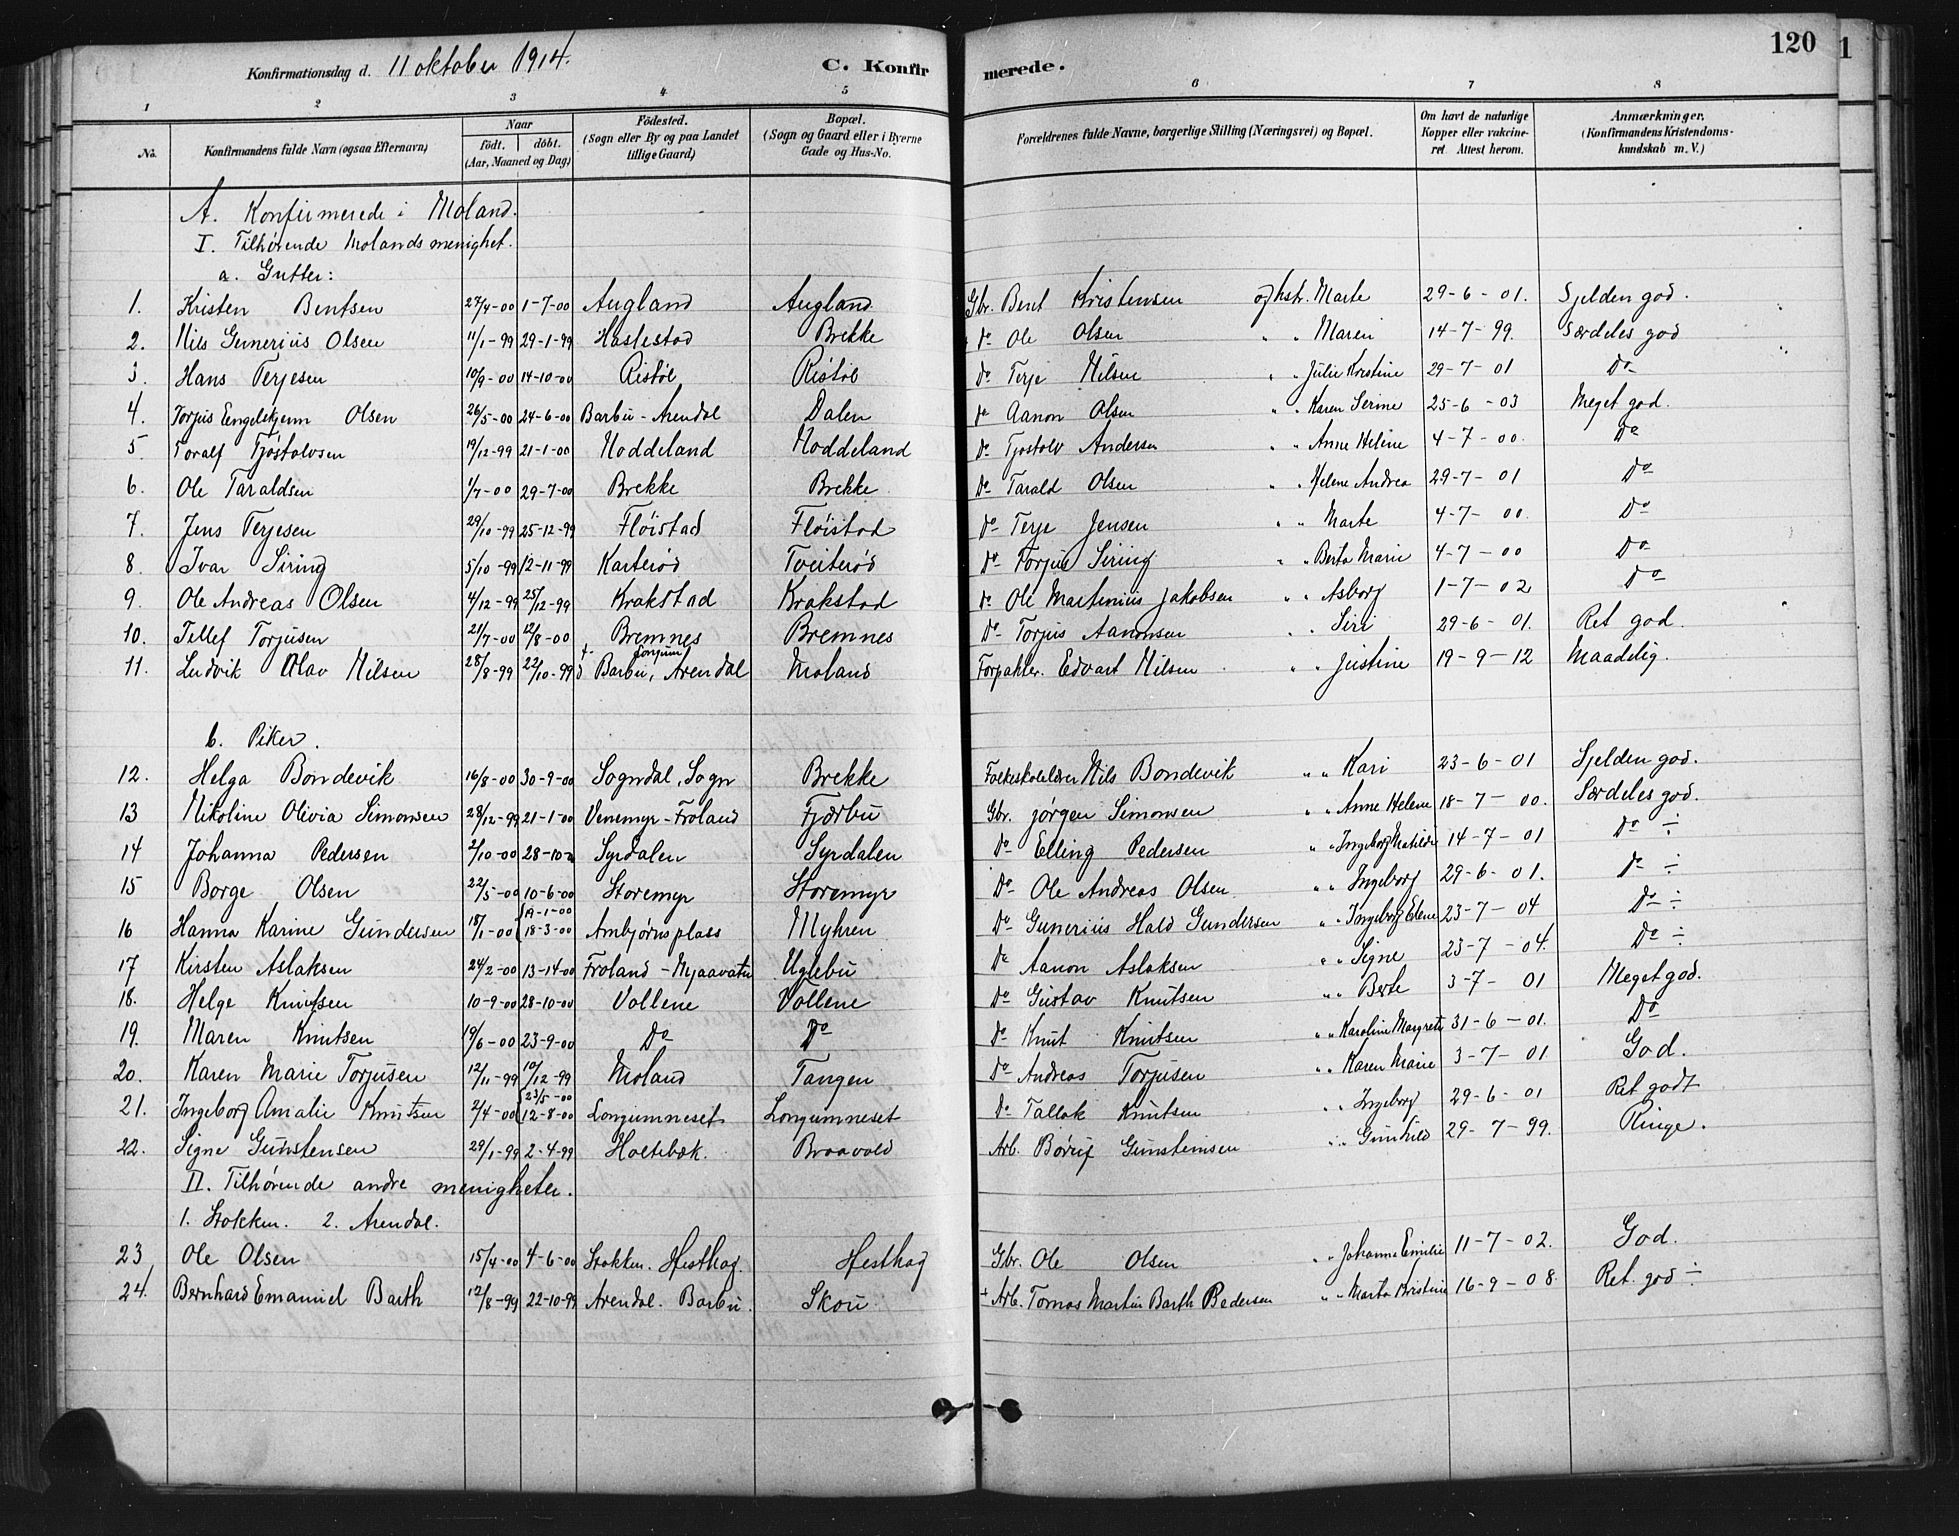 120
1
Konfirmationsdag d. 11 oktober 1914.
C. Konfirmerede.
1 2 3 4 5 6 7 8
No.
Konfirmandens fulde Navn (ogsaa Efternavn)
Naar
født. døbt.
(Aar, Maaned og Dag)
Fødested.
(Sogn eller By og paa Landet
tillige Gaard)
Bopæl.
(Sogn og Gaard eller i Byerne
Gade og Hus-No.
Forældrenes fulde Navne, borgerlige Stilling (Næringsvei) og Bopæl.
Om havt de naturlige
Kopper eller vakcine-
ret Attest herom.
Anmærkninger.
(Konfirmandens Kristendoms-
kundskab m. V.)
A. Konfirmerede i Moland.
I. Tilhørende Molands menighet.
a. Gutter:
1. Kristen Bentsen 27/4-00 1-7-00 Augland Augland Gbr. Bent Kristensen og hstr. Marte 29-6-01. Sjelden god.
2. Nils Gunerius Olsen 11/1-99 29-1-99 Haslestad Brekke Do Ole Olsen " " Maren 14-7-99. Særdeles god
3. Hans Terjesen 10/9-00 14-10-00 Ristøl Ristøl Do Terje Nilsen " " Julie Kristine 29-7-01 Do
4. Torjus Engelskjenn Olsen 26/5-00 24-6-00 Barbu-Arendal Dalen Do Aanon Olsen " " Karen Serine 25-6-03 Meget god.
5. Toralf Tjøstolvsen 19/12-99 21-1-00 Noddeland Noddeland Do Tjøstolv Andersen " " Anne Heline 4-7-00. Do
6. Ole Taraldsen 1/7-00 29-7-00 Brekke Brekke Do Tarald Olsen " " Helene Andrea 29-7-01 Do
7. Jens Terjesen 29/10-99 25-12-99 Fløistad Fløistad Do Terje Jensen " " Marte 4-7-00. Do
8. Ivar Siring 5/10-99 12-11-99 Karterød Tveiterød Do Torjus Siring " " Berta Marie 4-7-00 Do
9. Ole Andreas Olsen 4/12-99 25/12-99 Krakstad Krakstad Do Ole Martinius Jakobsen " " Asborg 1-7-02 Do
10. Tellef Torjusen 21/7-00 12/8-00 Bremnes Bremnes Do Torjus Aanonsen " " Siri 29-6-01. Ret god.
11. Ludvik Olav Nilsen 28/8-99 22/10-99 Longum Barbu, Arendal Moland Forpakter. Edvart Nilsen " " Justine 19-9-12 Maadelig.
b. Piker.
12. Helga Bondevik 16/8-00 30-9-00 Sogndal, Sogn Brekke Folkeskolelærer Nils Bondevik " " Kari 23-6-01 Sjelden god.
13 Nikoline Olivia Simonsen 28/12-99 21-1-00 Venemyr-Froland Fjærbu Gbr. Jørgen Simonsen " " Anne Helene 18-7-00. Særdeles god.
14 Johanna Pedersen 2/10-00 28-10-0 Syrdalen Syrdalen Do Elling Pedersen " Ingeborg Matilde 14-7-01 Do ÷
15 Borge Olsen 22/5-00 10-6-00 Storemyr Storemyr Do Ole Andreas Olsen " " Ingeborg 29-6-01. Do ÷
16 Hanna Karine Gundersen 18/1-00 {19-1-00 18-3-00 Ambjørnsplass Myhren Do Gunerius Hald Gundersen " " Ingeborg Elene 23-7-04 Do ÷
17 Kirsten Aslaksen 24/2-00 13-14-00 Froland-Mjaavatn Uglebu Do Aanon Aslaksen " " Signe 23-7-04. Do ÷
18. Helge Knutsen 10-9-00 28-10-00 Vollene Vollene Do Gustav Knutsen " " Berte 3-7-01 Meget god.
19. Maren Knutsen 19/6-00 23-9-00 Do Do Do Knut Knutsen " " Karoline Margrete 31-6-01. Do
20. Karen Marie Torjusen 12/11-99 10/12-99 Moland Tangen Do Andreas Torjusen " " Karen Marie 3-7-01 God.
21. Ingeborg Amalie Knutsen 2/4-00 {23/5-00 12-8-00 Longumneset Longumneset Do Tallak Knutsen " " Ingeborg 29-6-01 Ret godt
22. Signe Gunstensen 29/1-99 2-4-99 Holtebæk. Braavold Arb. Børuf Gunsteinsen " " Gunhild 29-7-99. Ringe.
II. Tilhørende andre menigheter.
1. Stokken. 2. Arendal.
23 Ole Olsen 15/4-00 4-6-00 Stokken. Hesthag. Hesthag Gbr. Ole Olsen " Johanna Emilie 11-7-02. God.
24. Bernhard Emanuel Barth 12/8-99 22-10-99 Arendal. Barbu. Skou. + Arb. Tomas Martin Barth Pedersen " " Marta Kristine 16-9-08. Ret god ÷